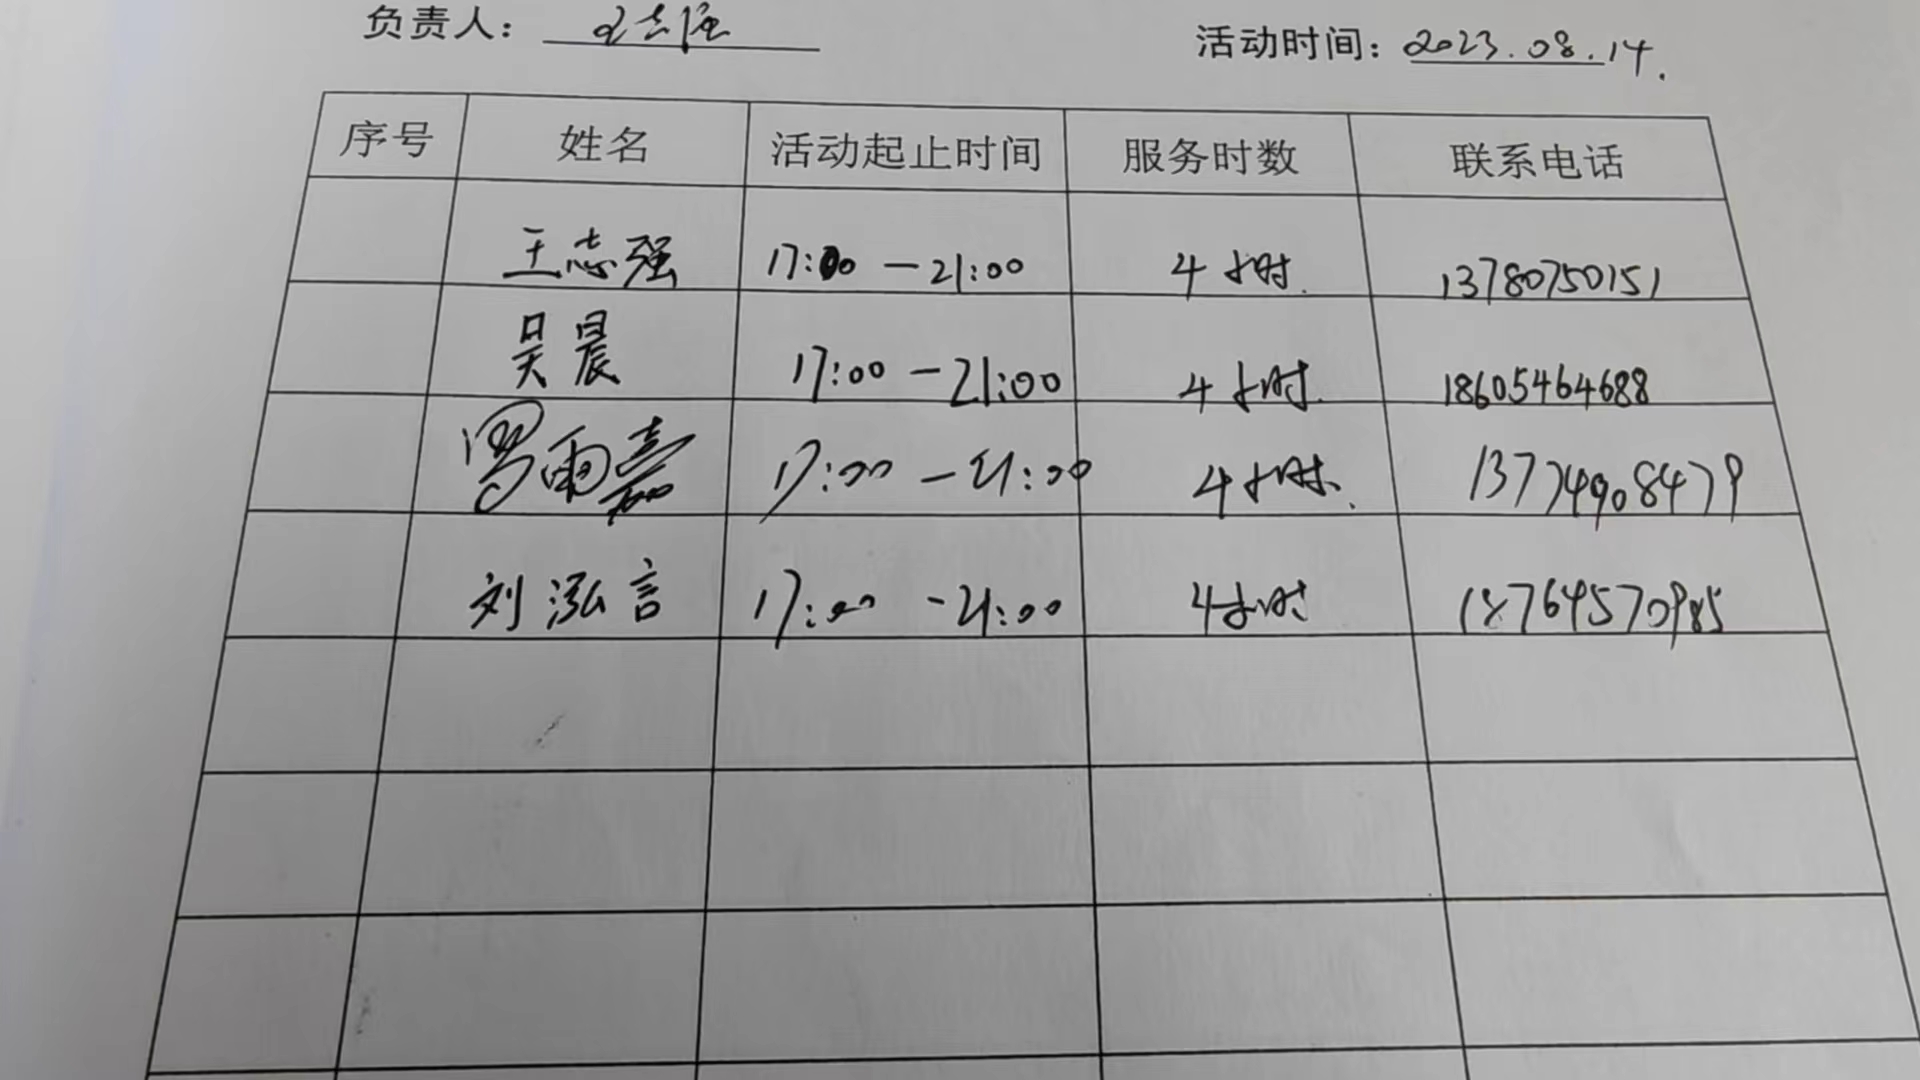 负责人： 王志强 活动时间：2023.08.14.
序号 姓名 活动起止时间 服务时数 联系电话
王志强 17:00 — 21:00 4小时. 13780750151
吴晨 17:00 — 21:00 4小时. 18605464688
雨嘉 17:00 — 21:00 4小时. 13774908479
刘泓言 17:00 - 21:00 4小时 18764570985